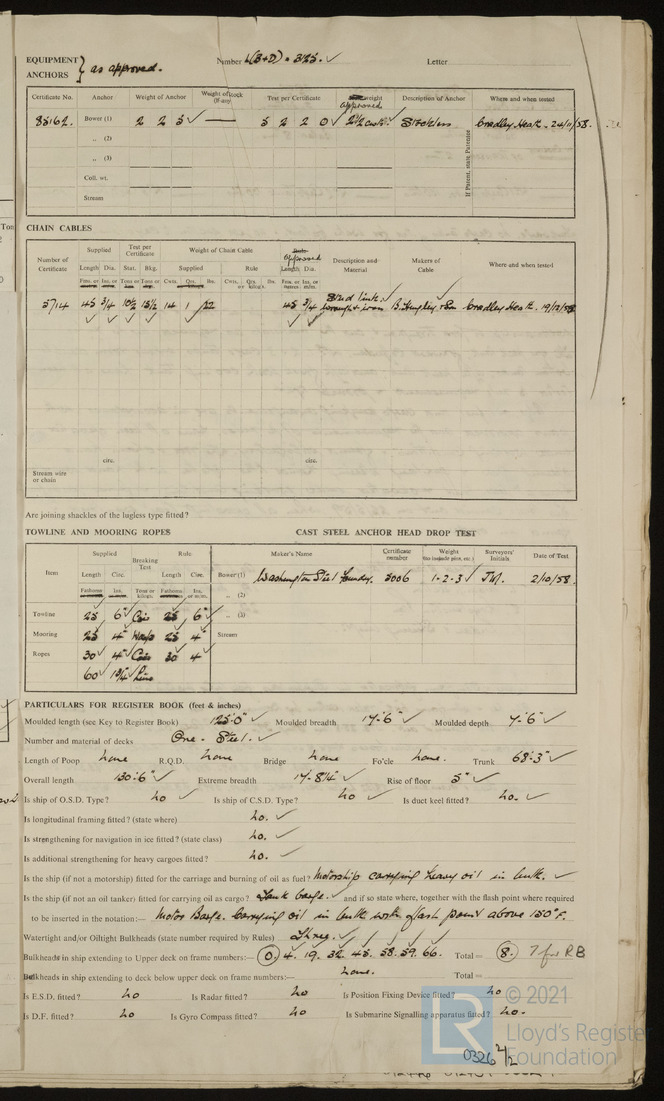 EQUIPMENT } as approved. Number L(B+D) = 3125. ✓ Letter
ANCHORS
Certificate No. Anchor Weight of Anchor Weight of Stock (if any) Test per Certificate Approved weight Description of Anchor Where and when tested
If Patent, state Patentee
83162. Bower (1) 2 2 3 ✓ — 5 2 2 0 ✓ 2½ cwts. ✓ Stockless Cradley Heath. 24/11/58.
,, (2)
,, (3)
Coll. wt.
Stream
CHAIN CABLES
Number of Certificate Supplied Test per Certificate Weight of Chain Cable Approved Description and Material Makers of Cable Where and when tested
Length Dia. Stat. Bkg. Supplied Rule Length Dia.
Cwts. Qrs. lbs. Cwts. Qrs. or kilogs. lbs.
5714 45 3/4 10½ 15½ 14 1 22 45 3/4 Stud link. wrought iron B. Hingley & Son Cradley Heath. 19/12/58
circ. circ.
Stream wire or chain
Are joining shackles of the lugless type fitted?
TOWLINE AND MOORING ROPES CAST STEEL ANCHOR HEAD DROP TEST
Item Supplied Breaking Test Rule Maker's Name Certificate number Weight Surveyors' Initials Date of Test
Length Circ. Length Circ.
Fathoms Ins. Tons or kilogs. Fathoms Ins. or m/m.
Bower (1) Washington Steel Foundry. 3006 1-2-3 ✓ 2/10/58.
,, (2)
,, (3)
Stream
Towline 25 6" Coir 25 6"
Mooring 25 4" 25 4"
Ropes 30 4" Coir 30 4
60
PARTICULARS FOR REGISTER BOOK (feet & inches)
Moulded length (see Key to Register Book) 125'-0" ✓ Moulded breadth 17'-6" ✓ Moulded depth 7'-6" ✓
Number and material of decks One - Steel. ✓
Length of Poop none R.Q.D. none Bridge none Fo'cle none. Trunk 68'-3" ✓
Overall length 130'-6" ✓ Extreme breadth 17'-8¼" ✓ Rise of floor 5" ✓
Is ship of O.S.D. Type? no ✓ Is ship of C.S.D. Type? no ✓ Is duct keel fitted? no. ✓
Is longitudinal framing fitted? (state where) no. ✓
Is strengthening for navigation in ice fitted? (state class) no. ✓
Is additional strengthening for heavy cargoes fitted? no. ✓
Is the ship (if not a motorship) fitted for the carriage and burning of oil as fuel? Motorship carrying heavy oil in bulk. ✓
Is the ship (if not an oil tanker) fitted for carrying oil as cargo? Tank barge. ✓ and if so state where, together with the flash point where required
to be inserted in the notation:— Motor Barge. Carrying oil in bulk with flash point above 150°F.
Watertight and/or Oiltight Bulkheads (state number required by Rules) Three. ✓
Bulkheads in ship extending to Upper deck on frame numbers:— 0. 4. 19. 32. 45. 58. 59. 66. Total = 8. 7 for RB
Bulkheads in ship extending to deck below upper deck on frame numbers:— none. Total =
Is E.S.D. fitted? no Is Radar fitted? no Is Position Fixing Device fitted? no
Is D.F. fitted? no Is Gyro Compass fitted? no Is Submarine Signalling apparatus fitted? no.
LR © 2021
Lloyd's Register
Foundation
0326 2/2